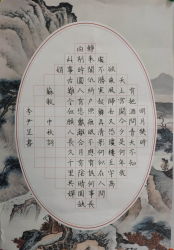 明月幾時
有把酒問青天不知
天上宮闕今夕是何年我
欲乘風歸去又恐瓊樓玉宇高
處不勝寒起舞弄清影何似在人間
轉朱閣低綺戶照無眠不應有恨何事長
向別時圓人有悲歡離合月有陰晴圓缺
此事古難全但願人長久千里共嬋
娟
蘇軾 中秋詞
李書